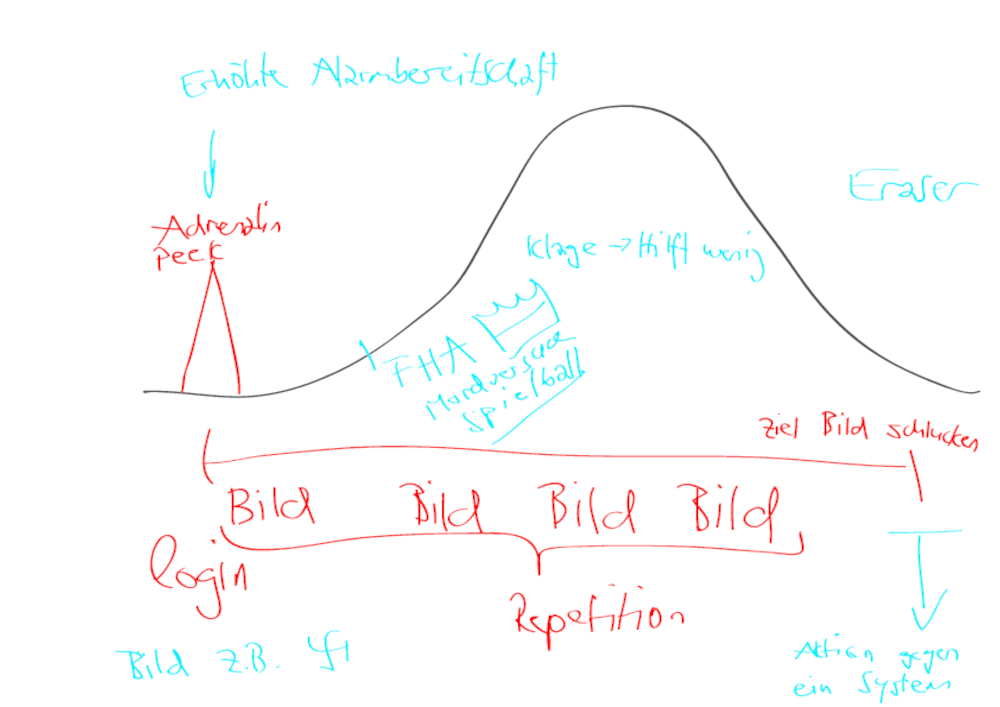 Erhöhte Alarmbereitschaft
Eraser
Adrenalin
peek
Klage → Hilft wenig
FHA
Mordversuch
Spielball
Ziel Bild schlucken
Bild Bild Bild Bild
login
Repetition
Bild z.B.
Aktion gegen
ein System